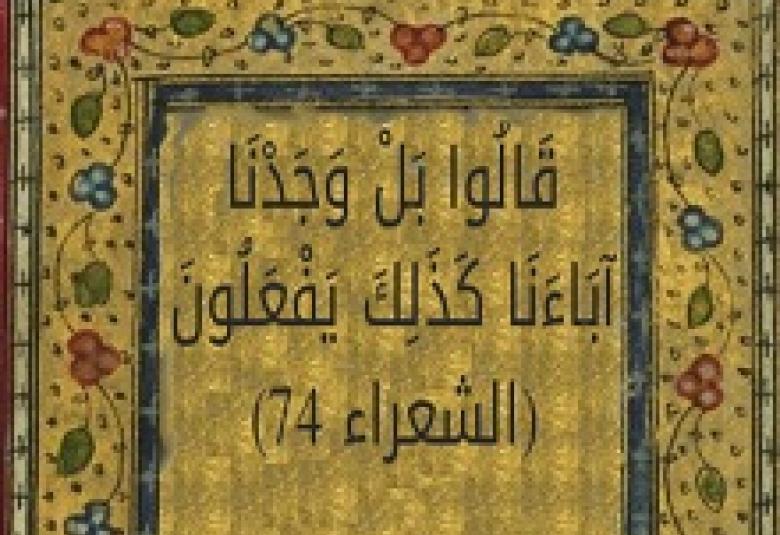 قَالُوا بَلْ وَجَدْنَا
آبَاءَنَا كَذَلِكَ يَفْعَلُونَ
(الشعراء 74)